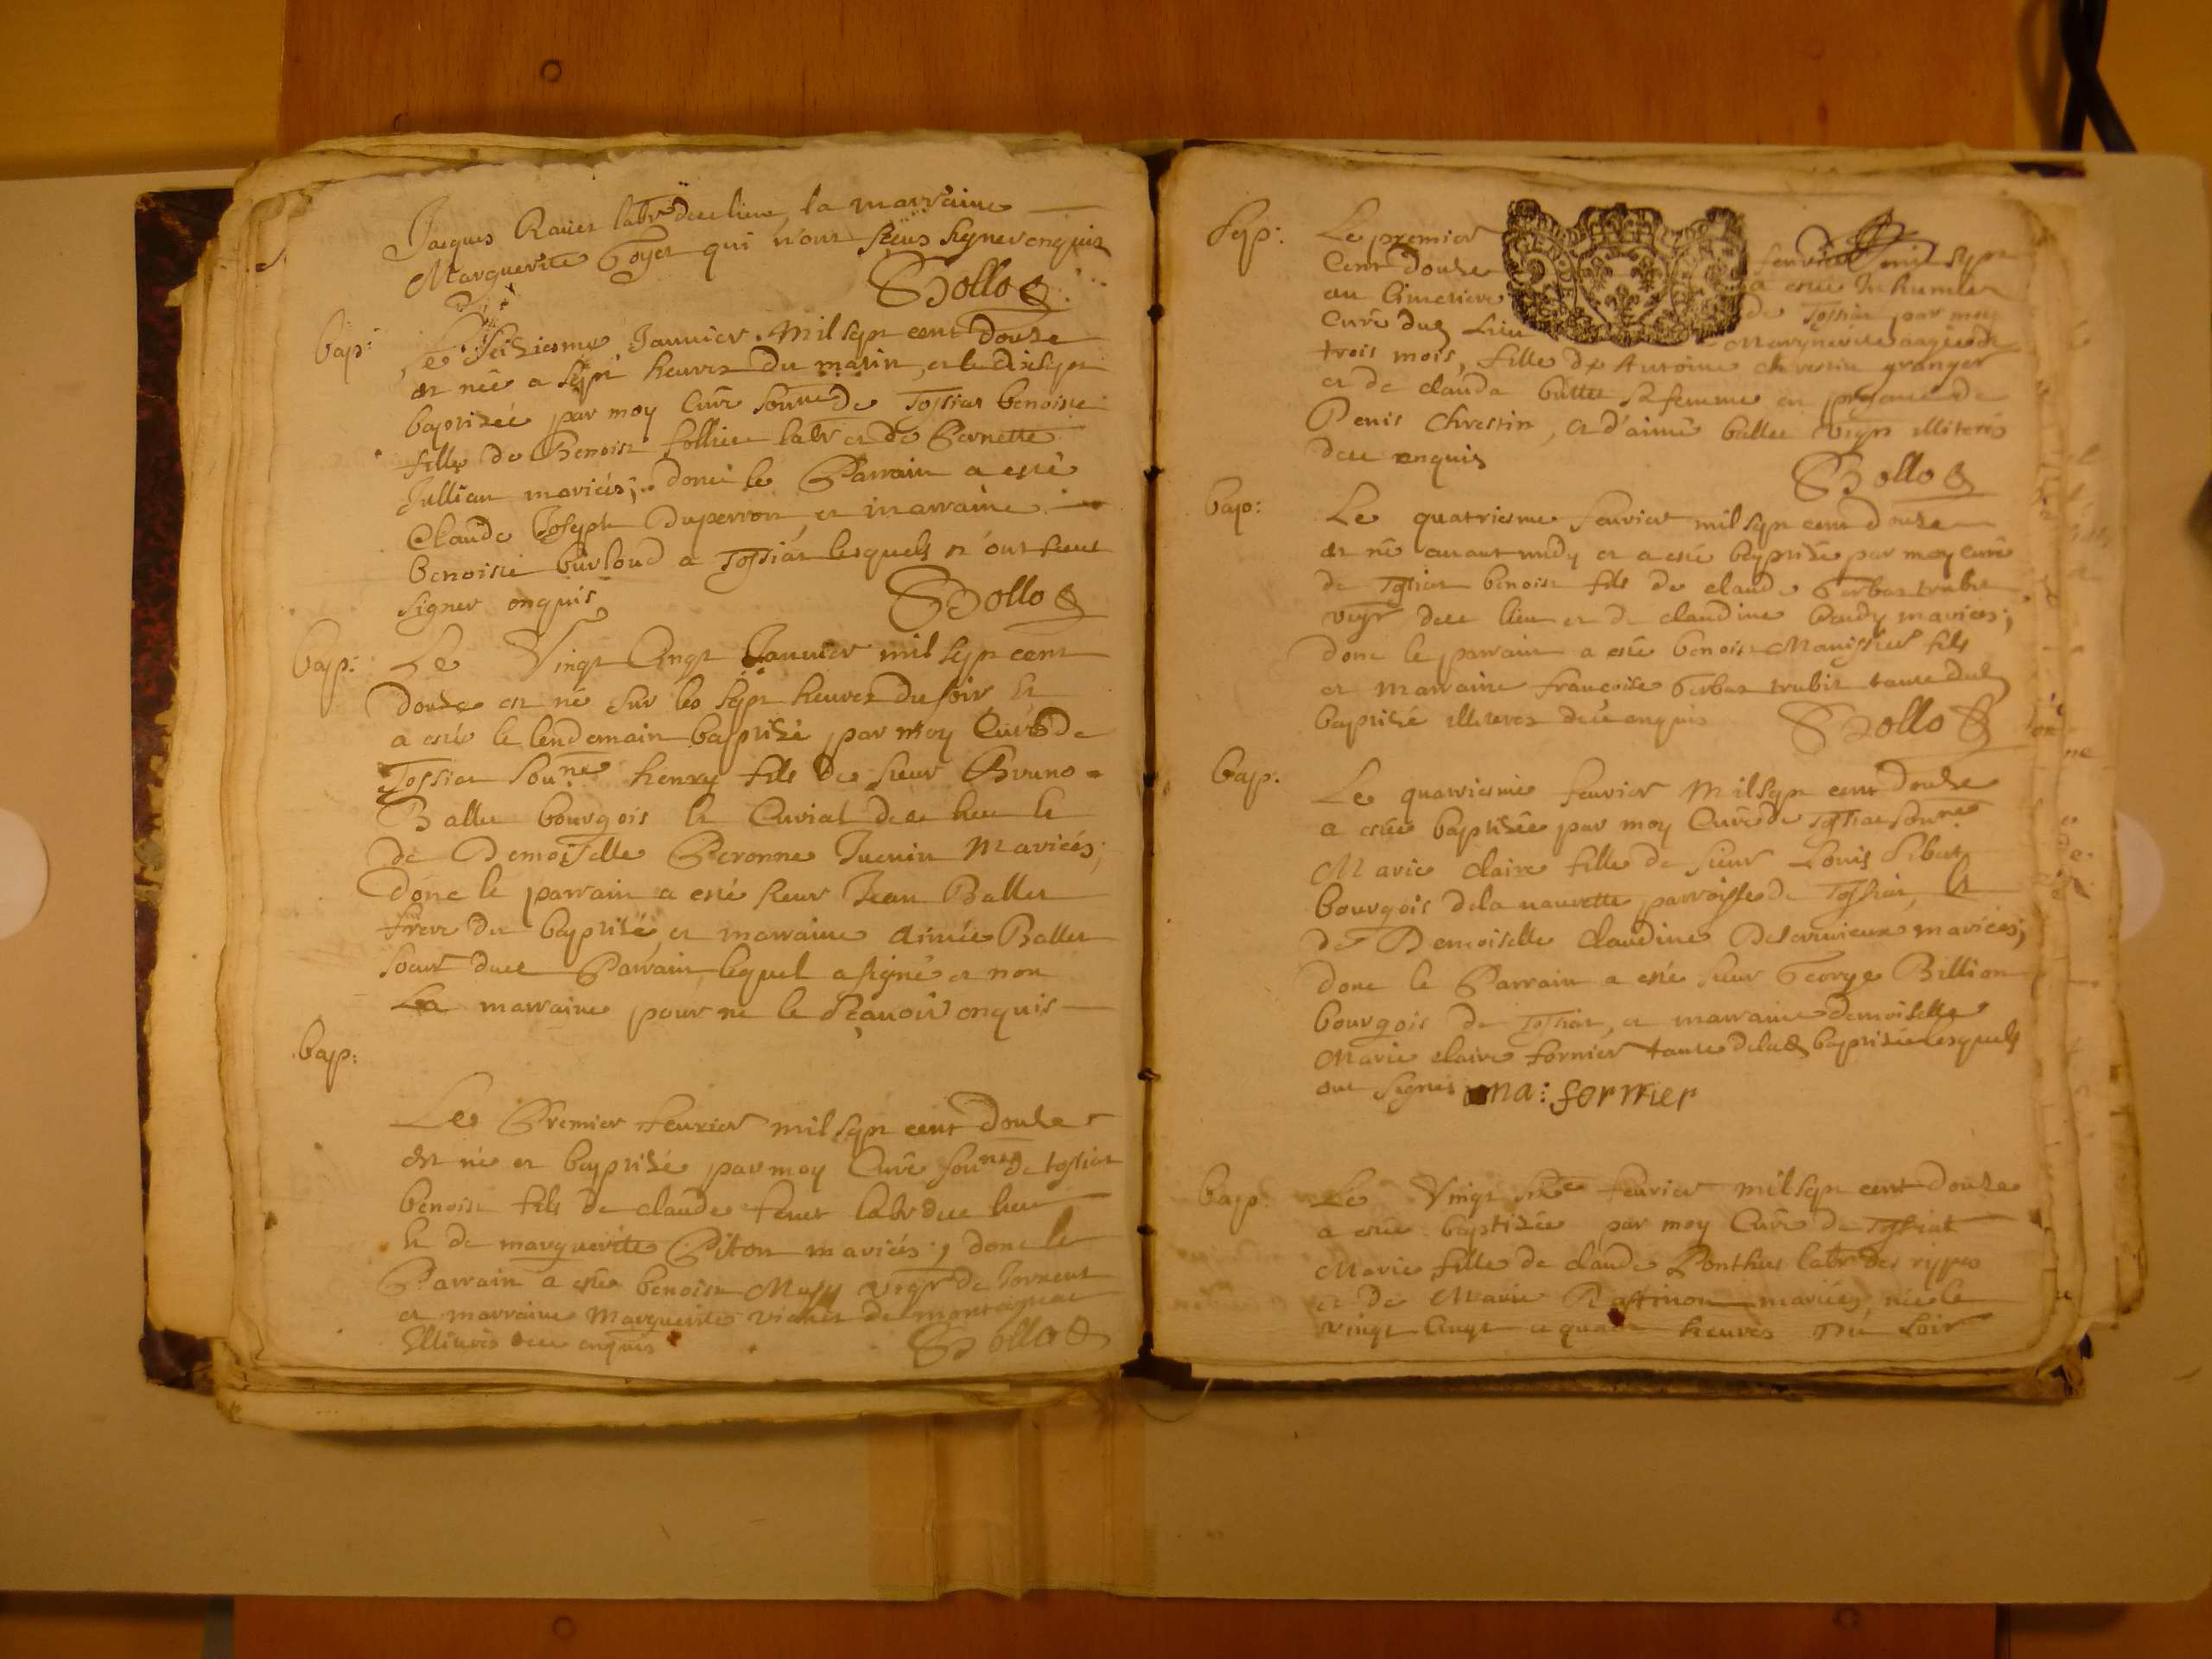 Jacques Ravier labr dud lieu, la marraine
Marguerite Goyet qui n'ont sceus signer enquis
Bollo
bap:
Le seiziesme Janvier mil sept cent douze
est née a sept heures du matin, et le dix sept
baptisée par moy Curé sousne de Tossiat benoiste
fille de Benoist follieu labr et de Pernette
Jullian mariés; dont le Parrain a esté
Claude Joseph Duperron, et marraine
benoiste burloud a Tossiat lesquels n'ont sceus
signer enquis
Bollo
bap:
Le Vingt Cinqt Janvier mil sept cent
douze est né sur les sept heures du soir, Et
a esté le lendemain baptisé par moy Curé de
Tossiat sousne henry fils de sieur Bruno
Ballet bourgois et Curial dud lieu et
de Demoiselle Peronne Juenin Mariés;
donc le parrain a esté sieur Jean Ballet
frere du baptisé, et marraine aimée Ballet
soeur dud Parrain, lequel a signé et non
La marraine pour ne le sçauoir enquis
bap:
Le Premier feurier mil sept cent Douze
est né et baptisé par moy Curé sousne de tossiat
benoist fils de claude feuet labr dud lieu
Et de marguerite Piton mariés; donc le
Parrain a esté benoist Musy vigr de Jorrent
et marraine Marguerite de montagnat
Illiterés enquis
Bollo
Sep:
Le premier feurier mil sept
Cent douze a esté Inhumée
au Cimetiere de Tossiat par moy
Curé dud Lieu Marguerite aagée de
trois mois, fille de Antoine chrestin granger
et de clauda buttet sa femme en presence de
Denis Chrestin, et d'aimé ballet vigrs illiterés
enquis
Bollo
bap:
Le quatriesme feurier mil sept cent douze
est né auant midy et a esté baptisé par moy curé
de Tossiat benoist fils de claude Gerbaz trubit
vigr dud lieu et de claudine baudy mariés;
donc le parrain a esté benoist Manissier fils
et marraine françoise Gerbaz trubit tante dud
baptisé illiteres enquis
Bollo
bap:
Le quatriesme feurier Mil sept cent Douze
a estée baptisée par moy Curé de Tossiat sousne
Marie claire fille de sieur Louis Sibut
bourgois de la nauette parroisse de Tossiat, Et
de Demoiselle claudine mariés;
donc le Parrain a esté sieur George Billion
bourgois de Tossiat, et marraine demoiselle
Marie claire fornier tante de lad baptisée lesquels
ont signés ma: fornier
bap:
Le Vingt sixe feurier mil sept cent Douze
a estée baptisée par moy Curé de Tossiat
Marie fille de claude Ponthus labr des rippes
et de Marie Raffinon mariés, née le
vingt Cinqt a quatre heures Du soir